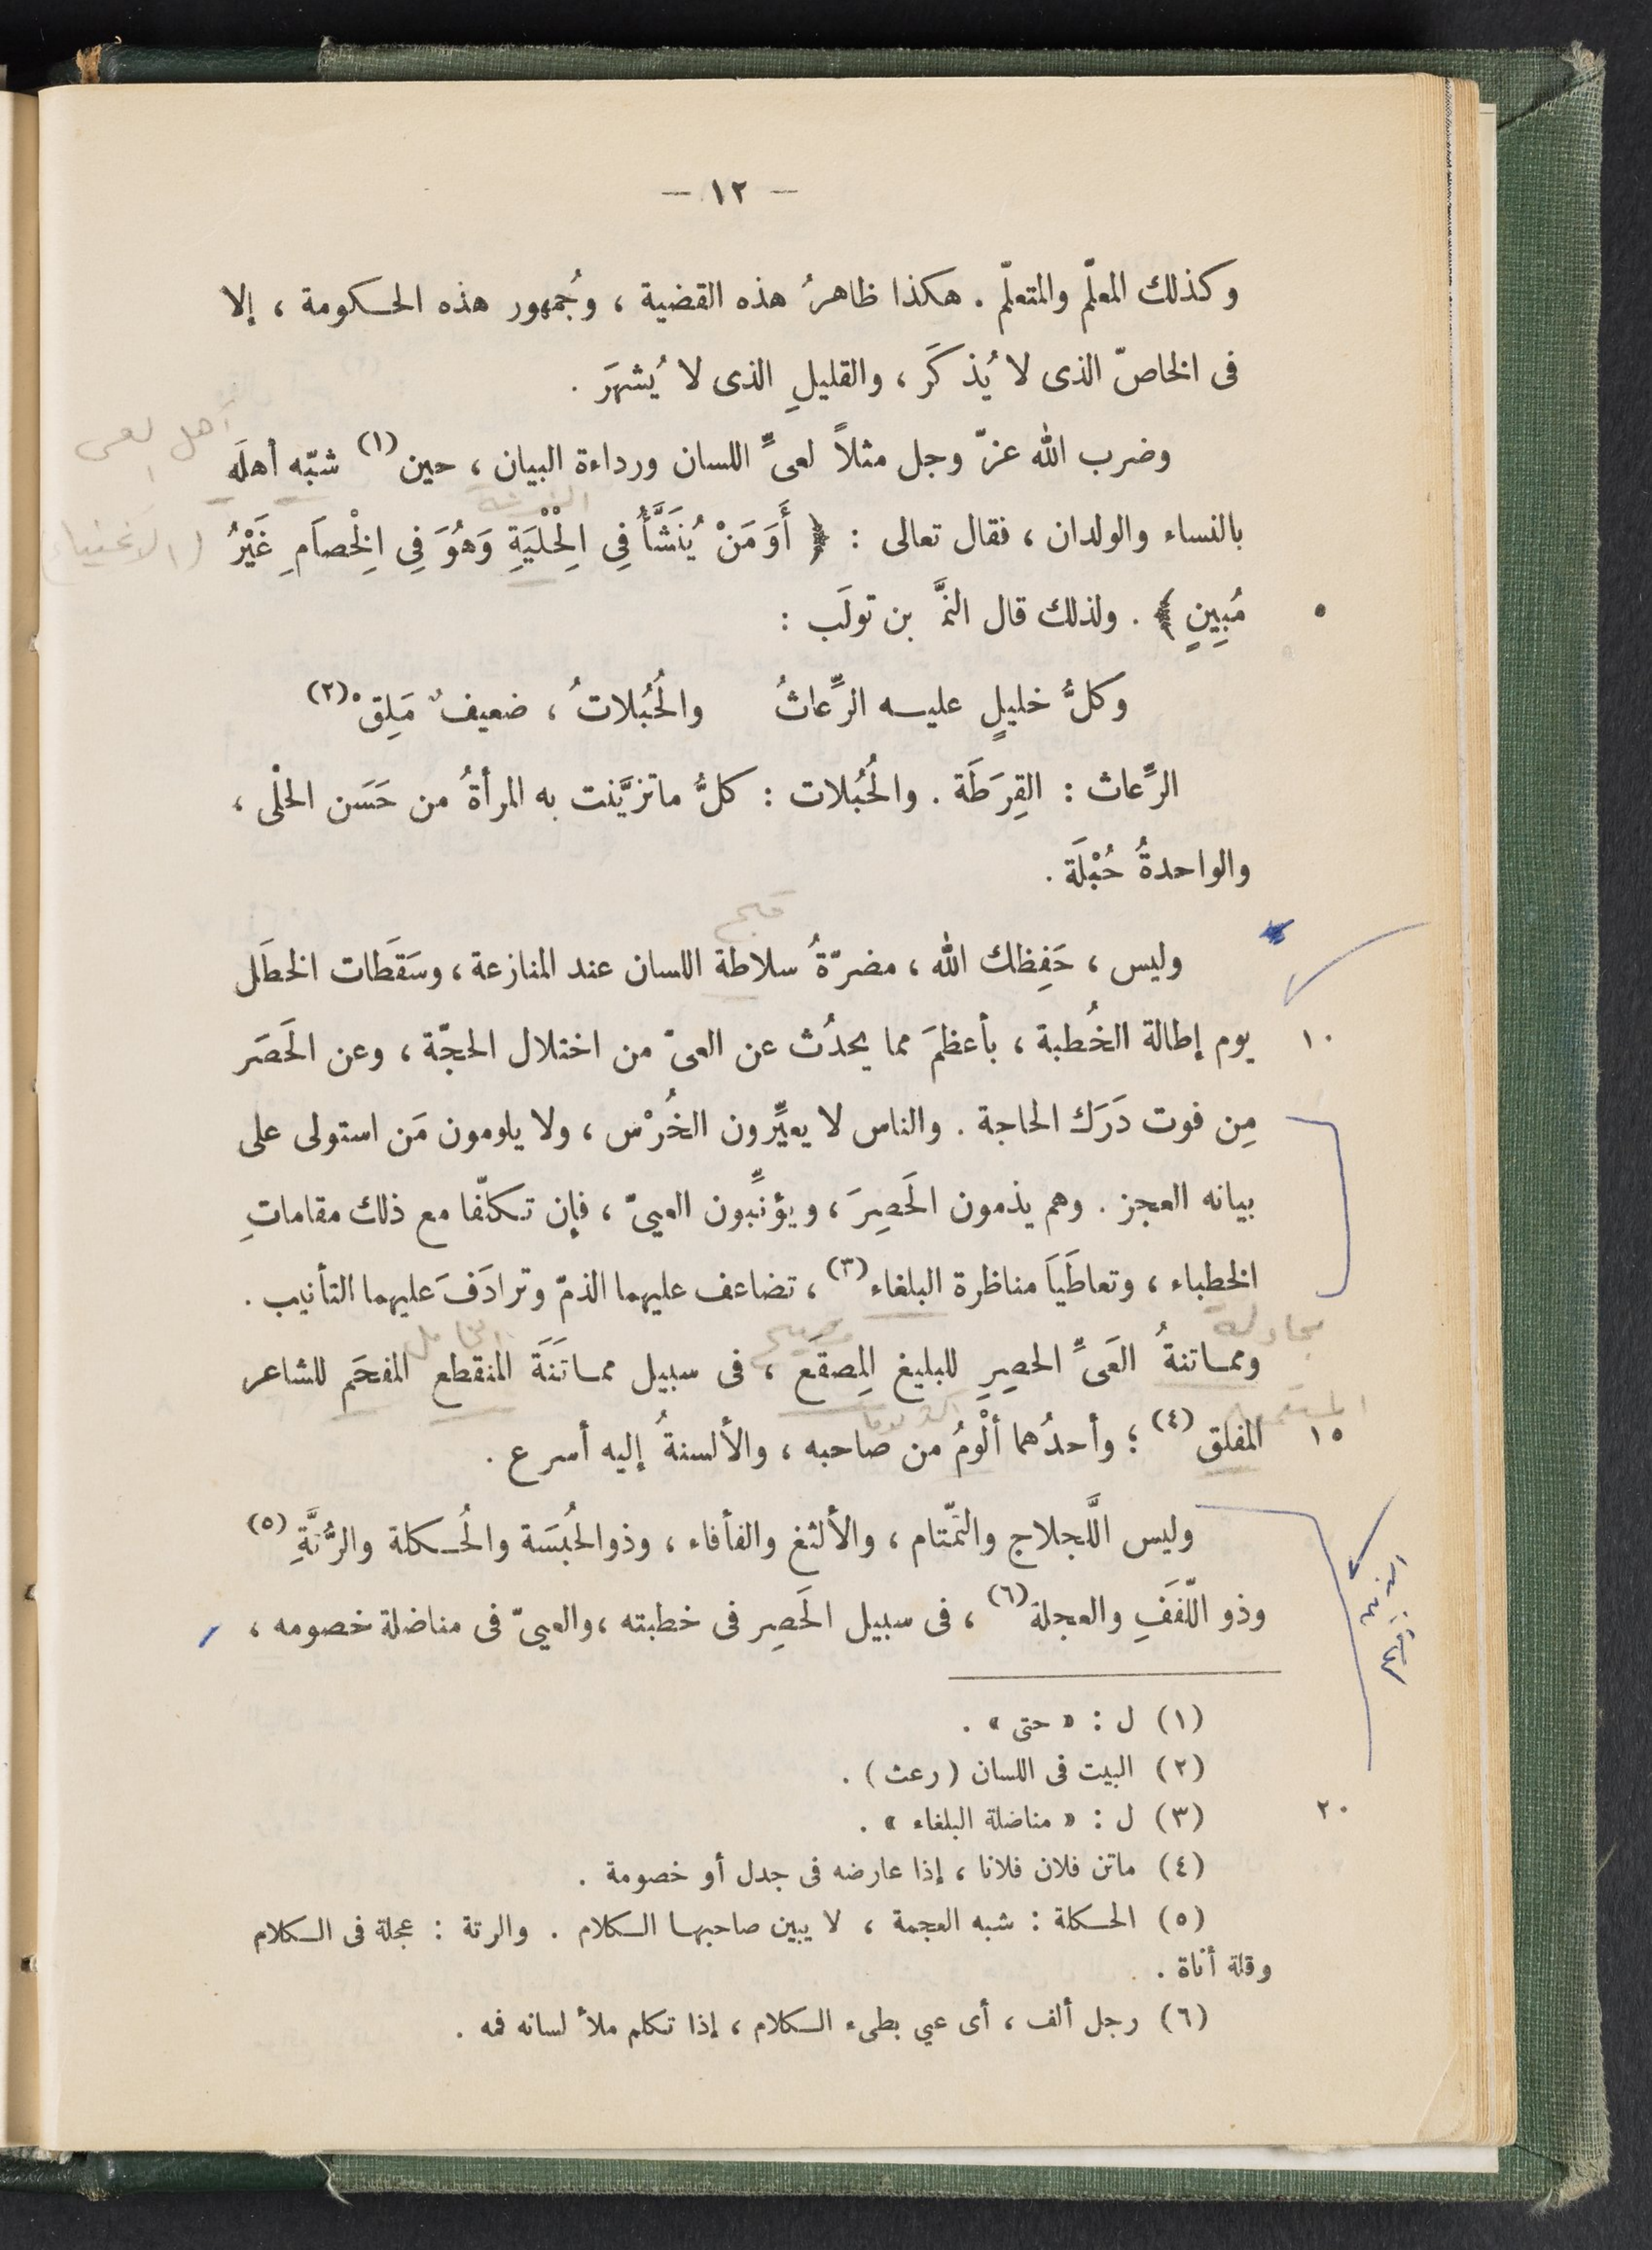 — ١٢ —
وكذلك المعلّم والمتعلّم . هكذا ظاهرُ هذه القضية ، وجُمهور هذه الحكومة ، إلا
فى الخاصّ الذى لا يُذكَر ، والقليلِ الذى لا يُشهَر .
أهل العى
وضرب الله عزّ وجل مثلاً لعىِّ اللسان ورداءة البيان ، حين (١) شبّه أهلَه
بالنساء والولدان ، فقال تعالى : ﴿ أَوَ مَنْ يُنَشَّأُ فِي الْحِلْيَةِ وَهُوَ فِي الْخِصَامِ غَيْرُ
مُبِينٍ ﴾ . ولذلك قال النَّمر بن تولَب :
٥
وكلُّ خليلٍ عليه الرِّعاثُ والحُبُلاتُ ، ضعيفٌ مَلِقْ (٢)
الرِّعاث : القِرَطَة . والحُبُلات : كلُّ ما تزيَّنت به المرأةُ من حَسَن الحلْى ،
والواحدةُ حُبْلَة .
وليس ، حَفِظك الله ، مضرّةُ سلاطة اللسان عند المنازعة ، وسَقَطَات الخطَل
يوم إطالة الخُطبة ، بأعظمَ مما يحدُث عن العىّ من اختلال الحجّة ، وعن الحَصَر
١٠
مِن فوت دَرَك الحاجة . والناس لا يعيِّرون الخُرْس ، ولا يلومون مَن استولى على
بيانه العجز . وهم يذمون الحَصِرَ ، ويؤنِّبون العيىّ ، فإن تكلّفا مع ذلك مقاماتِ
الخطباء ، وتعاطَيَا مناظرة البلغاء (٣) ، تضاعف عليهما الذمّ وترادَفَ عليهما التأنيب .
مجادلة
ومماتنةُ العَىِّ الحصِرِ للبليغ المِصقَع ، فى سبيل مماتَنَة المنقطع المفحَم للشاعر
المفلق (٤) ؛ وأحدُهما ألْومُ من صاحبه ، والألسنةُ إليه أسرع .
١٥
وليس اللَّجلاج والتمّتام ، والألثغ والفأفاء ، وذو الحُبْسَة والحُكلة والرُّتَّةِ (٥)
وذو اللّفَفِ والعجلة (٦) ، فى سبيل الحَصِر فى خطبته ، والعيىّ فى مناضلة خصومه ،
(١) ل : « حتى » .
(٢) البيت فى اللسان ( رعث ) .
(٣) ل : « مناضلة البلغاء » .
٢٠
(٤) ماتن فلان فلانا ، إذا عارضه فى جدل أو خصومة .
(٥) الحكلة : شبه العجمة ، لا يبين صاحبها الكلام . والرتة : عجلة فى الكلام
وقلة أناة .
(٦) رجل ألف ، أى عيي بطىء الكلام ، إذا تكلم ملأ لسانه فمه .